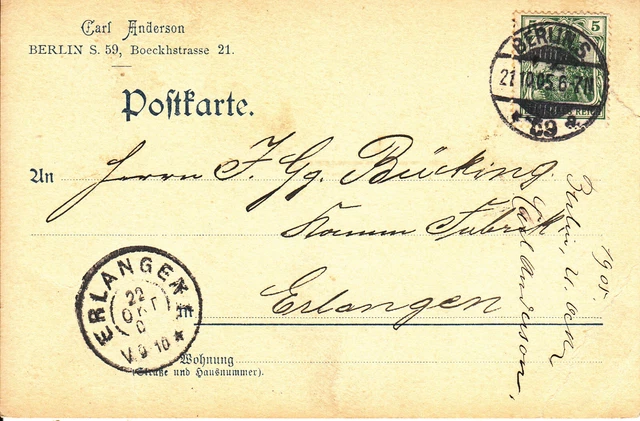 Carl Anderson
BERLIN S. 59, Boeckhstrasse 21.
Postkarte.
5 5
BERLIN.S.
21 10 05. 6-7N
* 59 a.
An Herrn J. Gg. Bücking.
Kamm Fabrik
Erlangen
Berlin, d.
1905.
Carl Anderson,
ERLANGEN
22
OKT
V. 9-10 *
Wohnung
(Straße und Hausnummer).